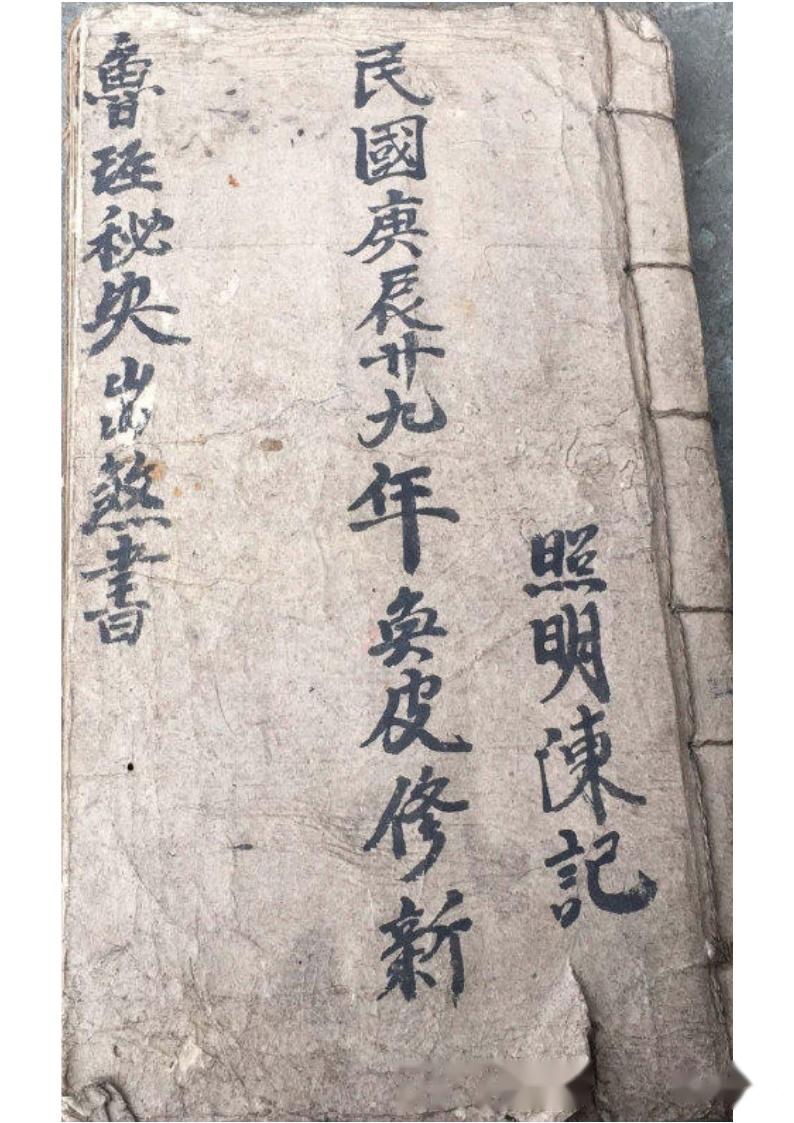 照明陳記
民國庚辰廿九年奐皮修新
魯班秘夬出煞書